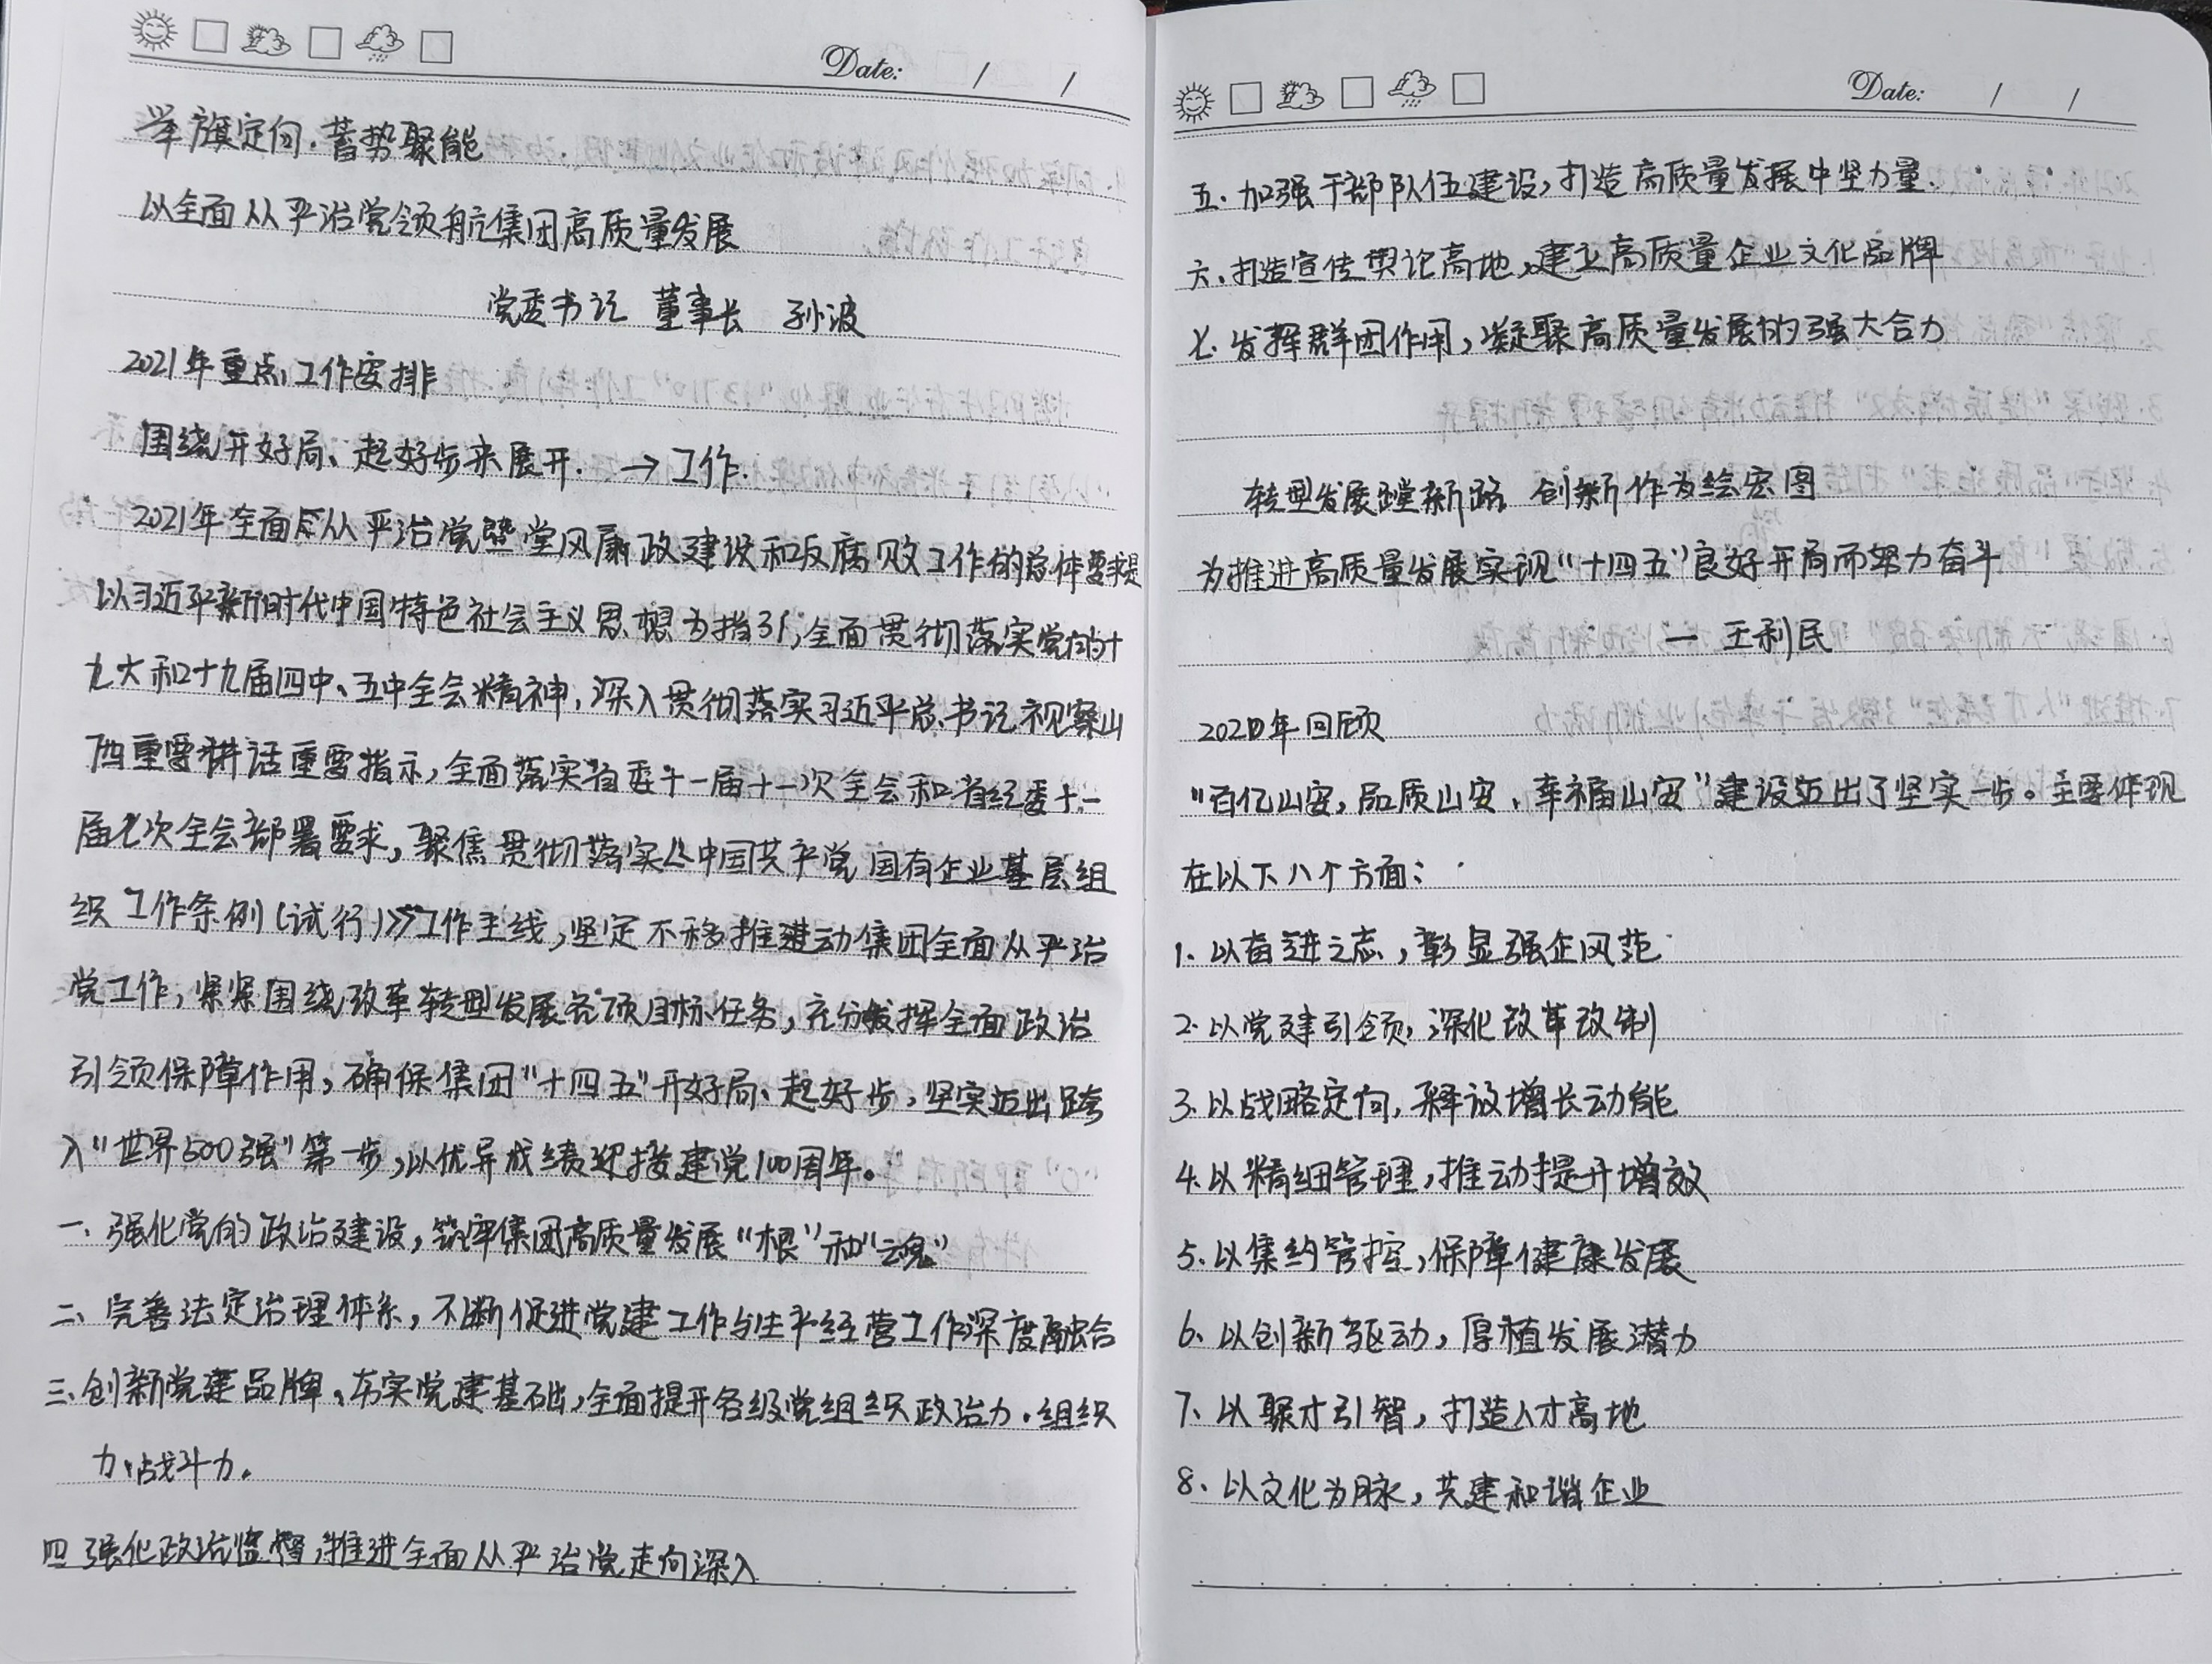 Date: / /
举旗定向.蓄势聚能
以全面从严治党领航集团高质量发展
党委书记 董事长 孙波
2021年重点工作安排
围绕开好局、起好步来展开. → 工作.
2021年全面从严治党暨党风廉政建设和反腐败工作的总体要求是
以习近平新时代中国特色社会主义思想为指引,全面贯彻落实党的十
九大和十九届四中、五中全会精神,深入贯彻落实习近平总书记视察山
西重要讲话重要指示,全面落实省委十一届十一次全会和省纪委十一
届七次全会部署要求,聚焦贯彻落实《中国共产党国有企业基层组
织工作条例(试行)》工作主线,坚定不移推进动集团全面从严治
党工作,紧紧围绕改革转型发展各项目标任务,充分发挥全面政治
引领保障作用,确保集团"十四五"开好局、起好步,坚实迈出跨
入"世界500强"第一步,以优异成绩迎接建党100周年。
一、强化党的政治建设,筑牢集团高质量发展"根"和"魂"
二、完善法定治理体系,不断促进党建工作与生产经营工作深度融合
三、创新党建品牌、夯实党建基础,全面提升各级党组织政治力.组织
力、战斗力。
四 强化政治监督,推进全面从严治党走向深入
Date: / /
五、加强干部队伍建设,打造高质量发展中坚力量.
六、打造宣传舆论高地,建立高质量企业文化品牌
七、发挥群团作用,凝聚高质量发展的强大合力
转型发展蹚新路 创新作为绘宏图
为推进高质量发展实现"十四五"良好开局而努力奋斗
— 王利民
2020年回顾
"百亿山安,品质山安,幸福山安"建设迈出了坚实一步。主要体现
在以下八个方面:
1. 以奋进之志,彰显强企风范
2. 以党建引领,深化改革改制
3. 以战略定向,释放增长动能
4. 以精细管理,推动提升增效
5. 以集约管控,保障健康发展
6. 以创新驱动,厚植发展潜力
7、以聚才引智,打造人才高地
8、以文化为脉,共建和谐企业